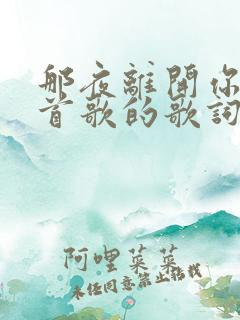 那夜離開你
首歌的歌詞
阿哩菜菜
未經同意禁止搭我